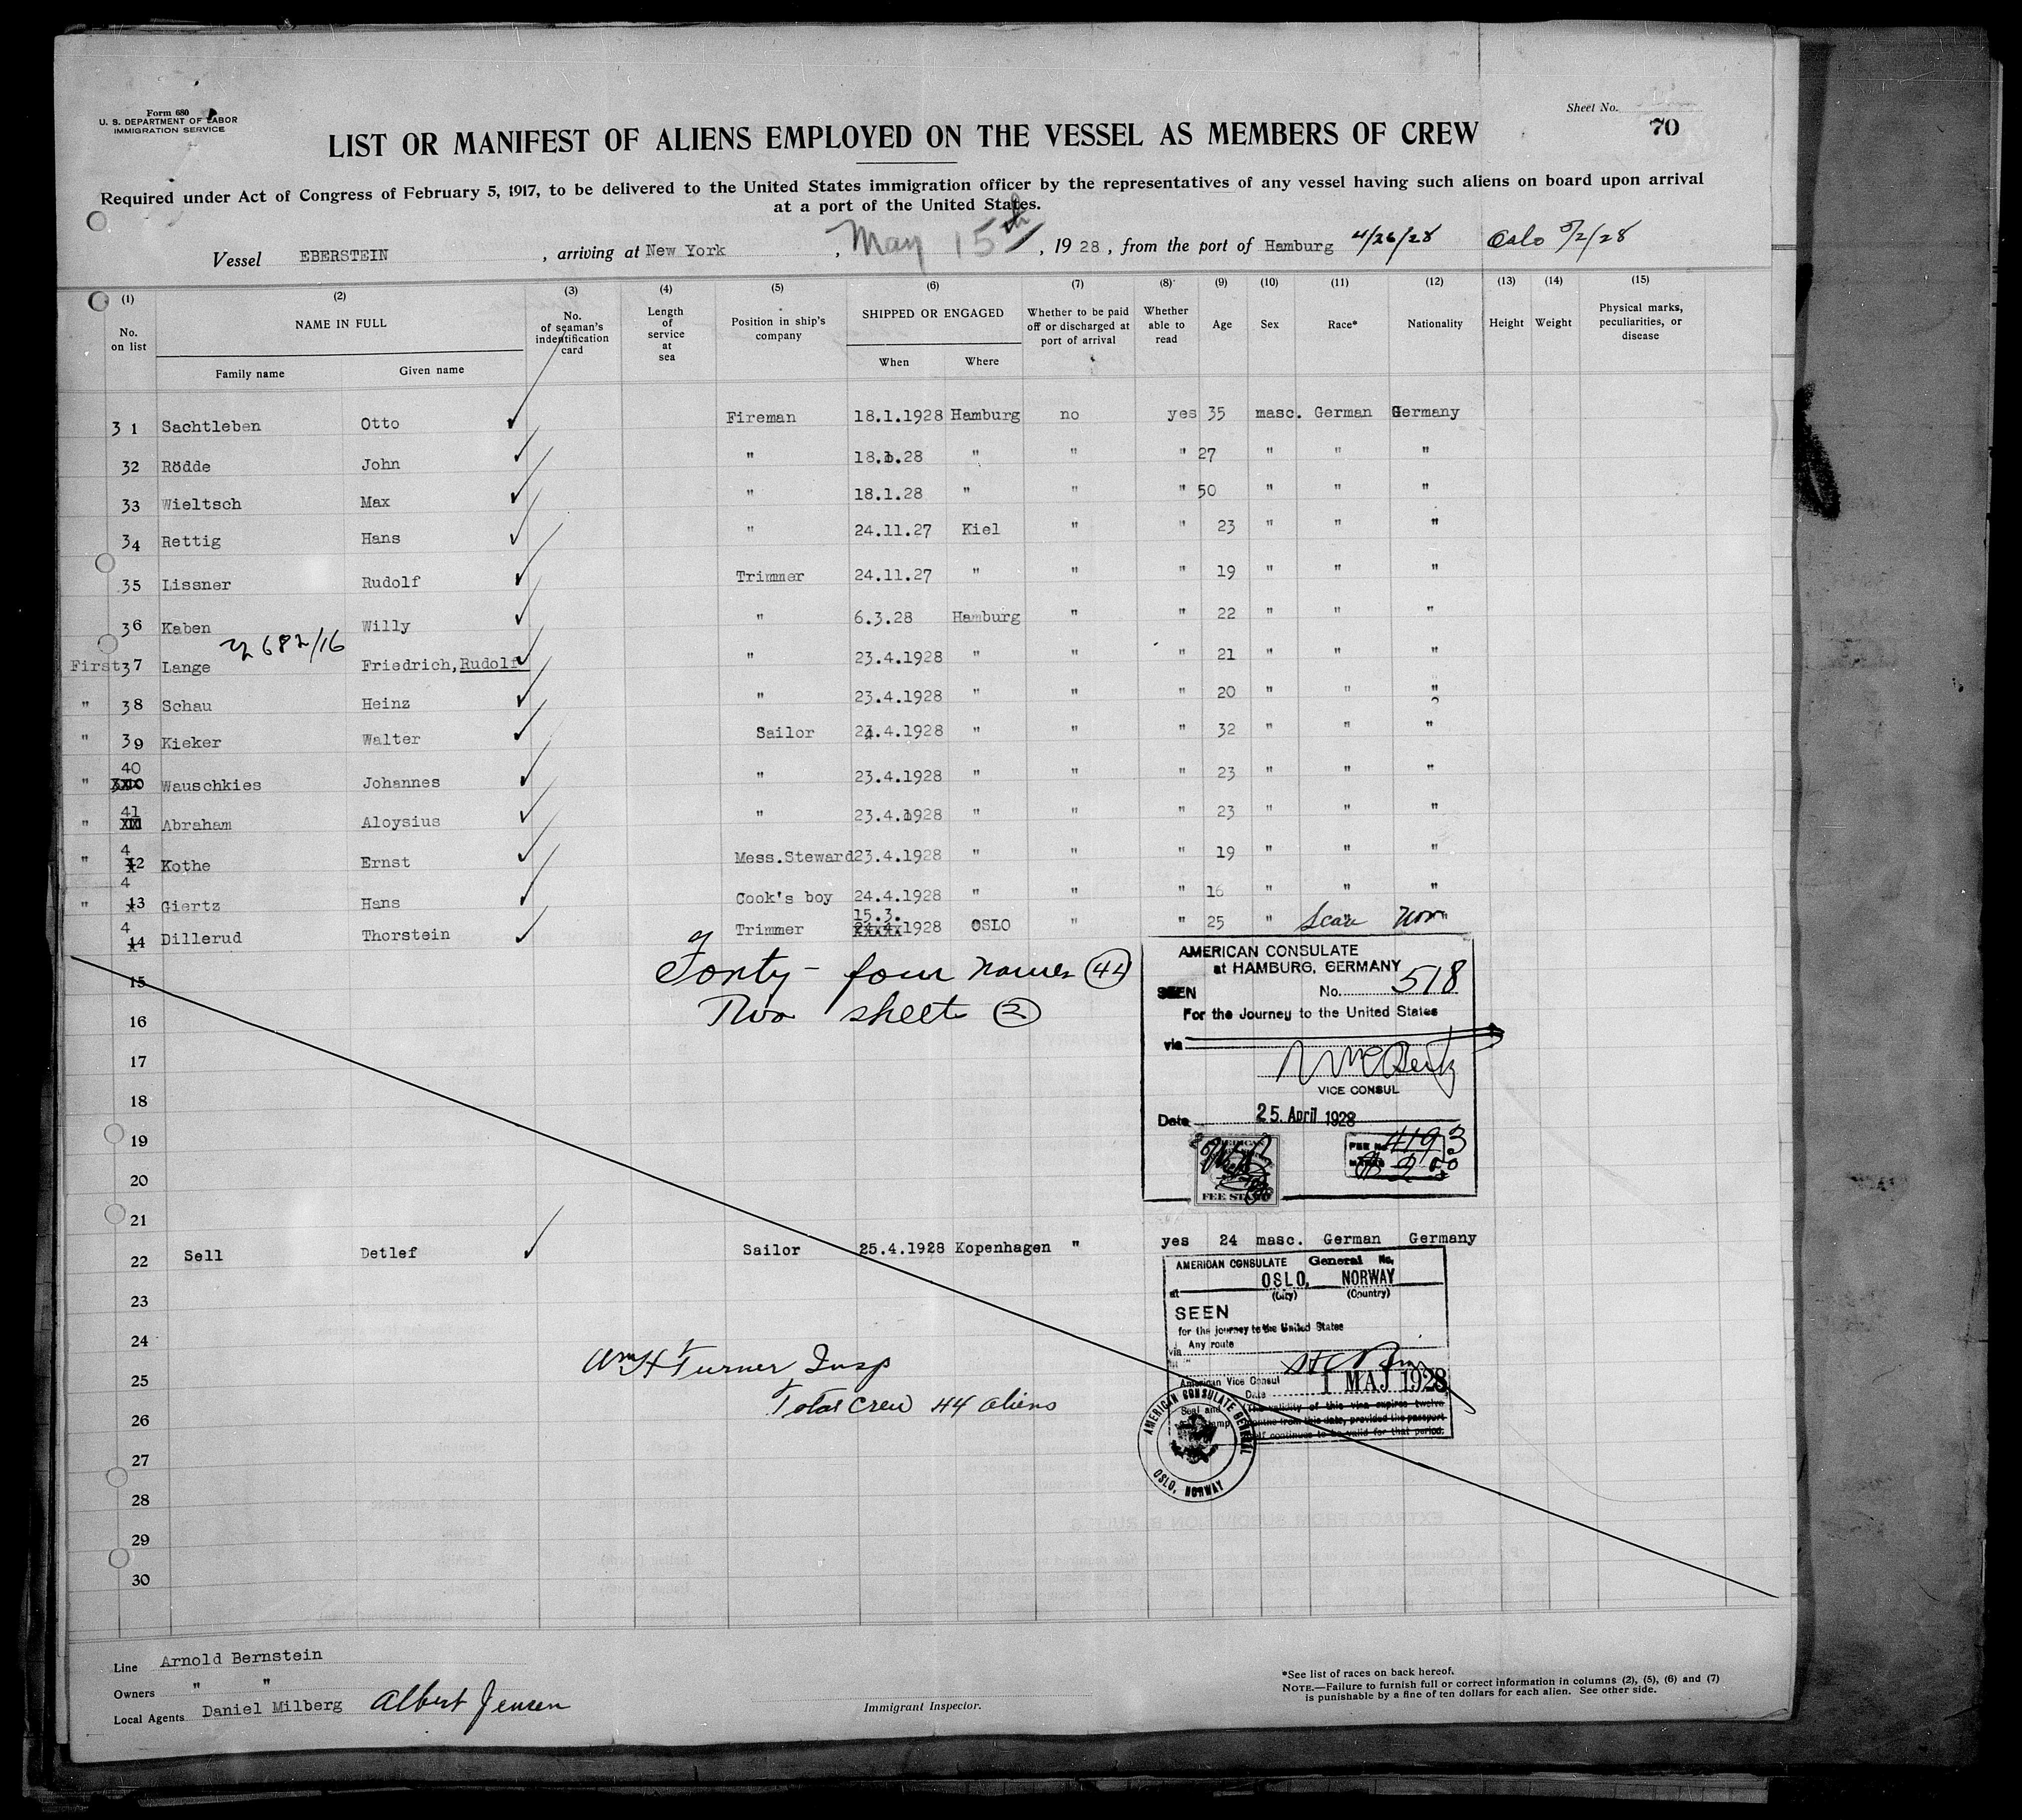 Form 680
U. S. DEPARTMENT OF LABOR
IMMIGRATION SERVICE
Sheet No.
70
LIST OR MANIFEST OF ALIENS EMPLOYED ON THE VESSEL AS MEMBERS OF CREW
Required under Act of Congress of February 5, 1917, to be delivered to the United States immigration officer by the representatives of any vessel having such aliens on board upon arrival
at a port of the United States.
Vessel EBERSTEIN, arriving at New York, May 15th, 1928, from the port of Hamburg 4/26/28 Oslo 5/2/28
(1) (2) (3) (4) (5) (6) (7) (8) (9) (10) (11) (12) (13) (14) (15)
No. on list
NAME IN FULL
Family name Given name
No. of seaman's indentification card
Length of service at sea
Position in ship's company
SHIPPED OR ENGAGED
When Where
Whether to be paid off or discharged at port of arrival
Whether able to read
Age Sex Race* Nationality Height Weight
Physical marks, peculiarities, or disease
31 Sachtleben Otto Fireman 18.1.1928 Hamburg no yes 35 masc. German Germany
32 Rödde John " 18.1.28 " " " 27 " " "
33 Wieltsch Max " 18.1.28 " " " 50 " " "
34 Rettig Hans " 24.11.27 Kiel " " 23 " " "
35 Lissner Rudolf Trimmer 24.11.27 " " " 19 " " "
36 Kaben Willy " 6.3.28 Hamburg " " 22 " " "
682/16
First 37 Lange Friedrich, Rudolf " 23.4.1928 " " " 21 " " "
" 38 Schau Heinz " 23.4.1928 " " " 20 " " "
" 39 Kieker Walter Sailor 24.4.1928 " " " 32 " " "
" 40 Wauschkies Johannes " 23.4.1928 " " " 23 " " "
" 41 Abraham Aloysius " 23.4.1928 " " " 23 " " "
" 42 Kothe Ernst Mess.Steward 23.4.1928 " " " 19 " " "
" 43 Giertz Hans Cook's boy 24.4.1928 " " " 16 " " "
44 Dillerud Thorstein Trimmer 15.3.1928 OSLO " " 25 " Scan Nor
Forty-four names (44)
Two sheets (2)
15
16
17
18
19
20
21
AMERICAN CONSULATE
at HAMBURG, GERMANY
SEEN No. 518
For the Journey to the United States
via
VICE CONSUL
Date 25. April 1928
FEE No 4193
FEE STAMP
22 Sell Detlef Sailor 25.4.1928 Kopenhagen " yes 24 masc. German Germany
23
24
25
26
27
28
29
30
AMERICAN CONSULATE General No.
at OSLO, NORWAY
(City) (Country)
SEEN
for the journey to the United States
via Any route
American Vice Consul
Date 1 MAJ 1928
Seal and Stamp
The validity of this visa expires twelve
months from this date, provided the passport
itself continues to be valid for that period.
AMERICAN CONSULATE GENERAL
OSLO, NORWAY
Wm H Turner Insp
Total crew 44 aliens
Line Arnold Bernstein
Owners " "
Local Agents Daniel Milberg Albert Jensen
Immigrant Inspector.
*See list of races on back hereof.
NOTE.—Failure to furnish full or correct information in columns (2), (5), (6) and (7)
is punishable by a fine of ten dollars for each alien. See other side.